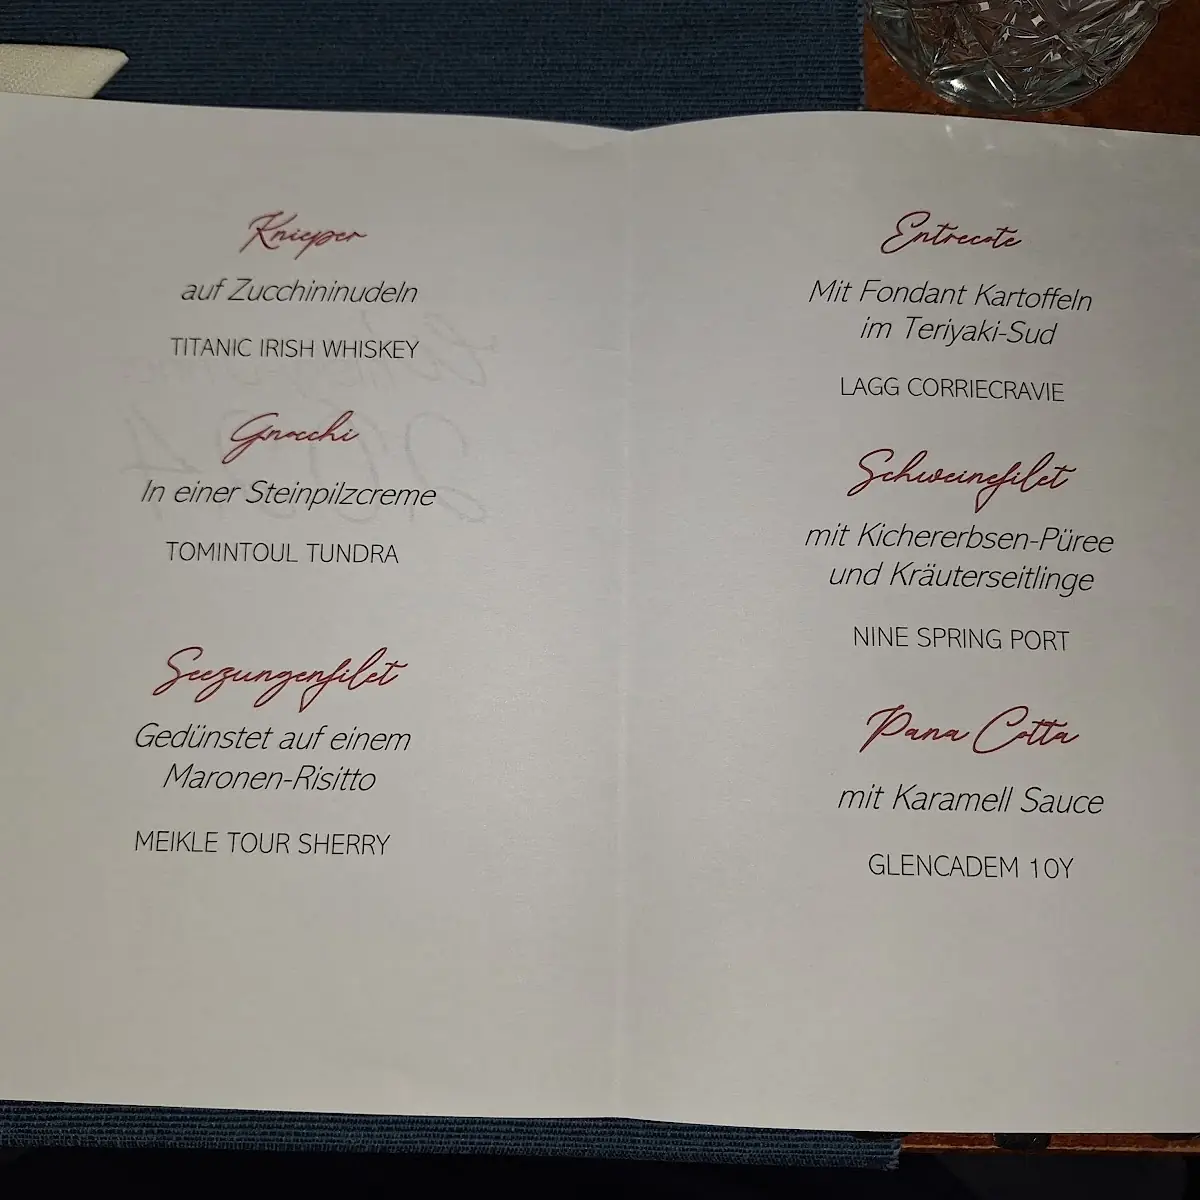 Knieper
auf Zucchininudeln
TITANIC IRISH WHISKEY
Gnocchi
In einer Steinpilzcreme
TOMINTOUL TUNDRA
Seezungenfilet
Gedünstet auf einem
Maronen-Risitto
MEIKLE TOUR SHERRY
Entrecote
Mit Fondant Kartoffeln
im Teriyaki-Sud
LAGG CORRIECRAVIE
Schweinefilet
mit Kichererbsen-Püree
und Kräuterseitlinge
NINE SPRING PORT
Pana Cotta
mit Karamell Sauce
GLENCADEM 10Y